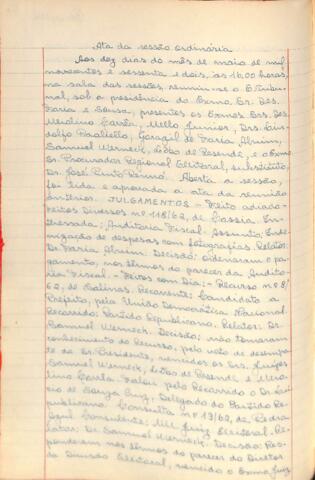 Ata da sessão ordinária
Aos dez dias do mês de maio de mil
novecentos e sessenta e dois, às 16,00 horas,
na sala das sessões, reuniu-se o E. Tribu-
nal, sob a presidência do Exmo. Sr. Des.
Faria e Sousa, presentes os Exmos. Srs. Des.
Merolino Corrêa, Mello Junior, Drs.
Paoliello, Faria Alvim,
Samuel Werneck, Leão de Resende, e o Exmo.
Sr. Procurador Regional Eleitoral, substituto,
Dr. José Pinto Renó. Aberta a sessão,
foi lida e aprovada a ata da reunião
anterior. JULGAMENTOS - Feito adiado -
Feitos Diversos nº 118/62, de Cassia. In-
teressada: Auditoria Fiscal. Assunto: Inde-
nização de despesas com fotografias. Relator:
Dr. Faria Alvim. Decisão: Ordenaram o pa-
gamento, nos têrmos do parecer da Audito-
ria Fiscal. - Feitos com Dia: - Recurso nº 8/
62, de Salinas. Recorrente: Candidato a
Prefeito, pela União Democrática Nacional.
Recorrido: Partido Republicano. Relator: Dr.
Samuel Werneck. Decisão: não tomaram
conhecimento do recurso, pelo voto de desempa-
te do Sr. Presidente, vencidos os Srs. Juízes
Samuel Werneck, Leão de Resende e
Corrêa. Falou pelo Recorrido o Dr.
de Souza Cruz, Delegado do Partido Re-
publicano. Consulta nº 19/62, de Pedra
Azul. Consulente: MM. Juiz Eleitoral. Re-
lator: Dr. Samuel Werneck. Decisão: Res-
ponderam nos têrmos do parecer do Diretor
da Divisão Eleitoral, vencido o Exmo. Juiz